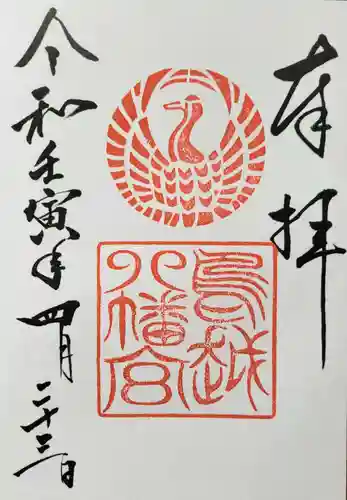 奉拝
鳥越
八幡宮
令和壬寅年四月二十三日